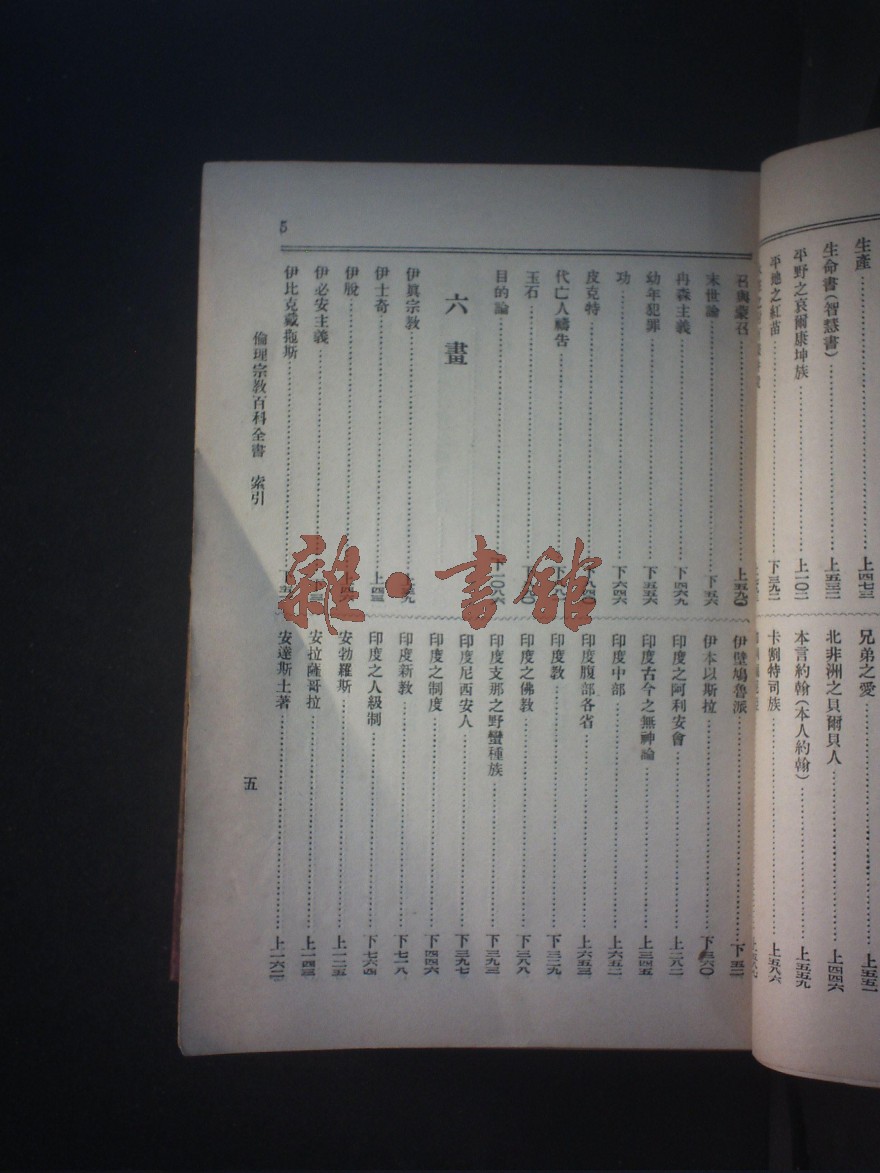 生產 上四七三
生命書(智慧書) 上五三二
平野之哀爾康坤族 上一〇二
平地之紅苗 下三九二
兄弟之愛 上五五一
北非洲之貝爾貝人 上四四六
本言約翰(本人約翰) 上五五九
卡割特司族 上五八六
5
召與蒙召 上五九〇
末世論 下五六
冉森主義 下四六九
幼年犯罪 下五五六
功 下六四六
皮克特
代亡人禱告
玉石
目的論 下一〇八六
六畫
伊眞宗教
伊士奇 上四三
伊脫
伊必安主義
伊比克戴拖斯
伊壁鳩魯派 下五二
伊本以斯拉
印度之阿利安會 上二八二
印度古今之無神論 上三四五
印度中部 上六五二
印度腹部各省 上六五三
印度教 下三二九
印度之佛教 下三八八
印度支那之野蠻種族 下三九三
印度尼西安人 下三九七
印度之制度 下四四六
印度新教 下七一八
印度之人級制 下七六四
安勃羅斯 上一二五
安拉薩哥拉 上一四三
安達斯土著 上一六二
倫理宗教百科全書 索引
五
雜·書館